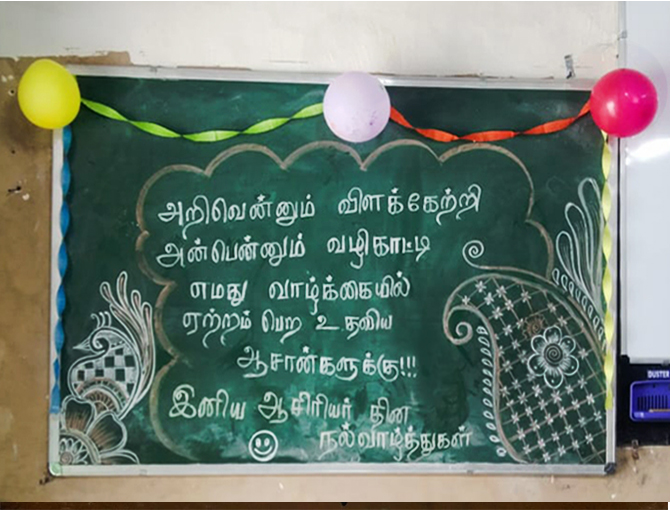 அறிவென்னும் விளக்கேற்றி
அன்பென்னும் வழிகாட்டி
எமது வாழ்க்கையில்
ஏற்றம் பெற உதவிய
ஆசான்களுக்கு!!!
இனிய ஆசிரியர் தின
நல்வாழ்த்துகள்
DUSTER